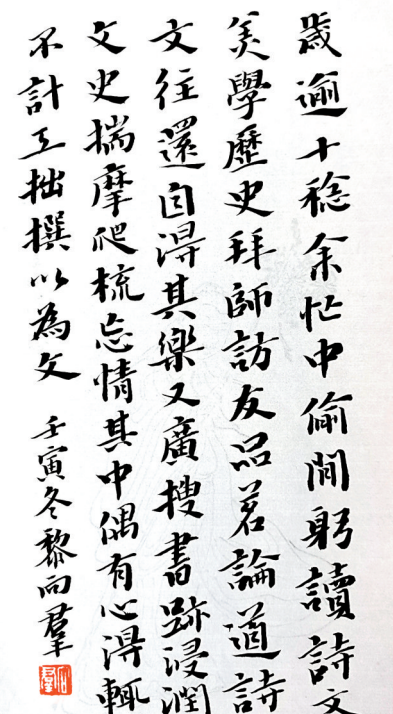 歲逾十稔余忙中偷閒躬讀詩文
美學歷史拜師訪友品茗論道詩
文往還自得其樂又廣搜書跡浸潤
文史揣摩爬梳忘情其中偶有心得輒
不計工拙撰以為文
壬寅冬黎向群